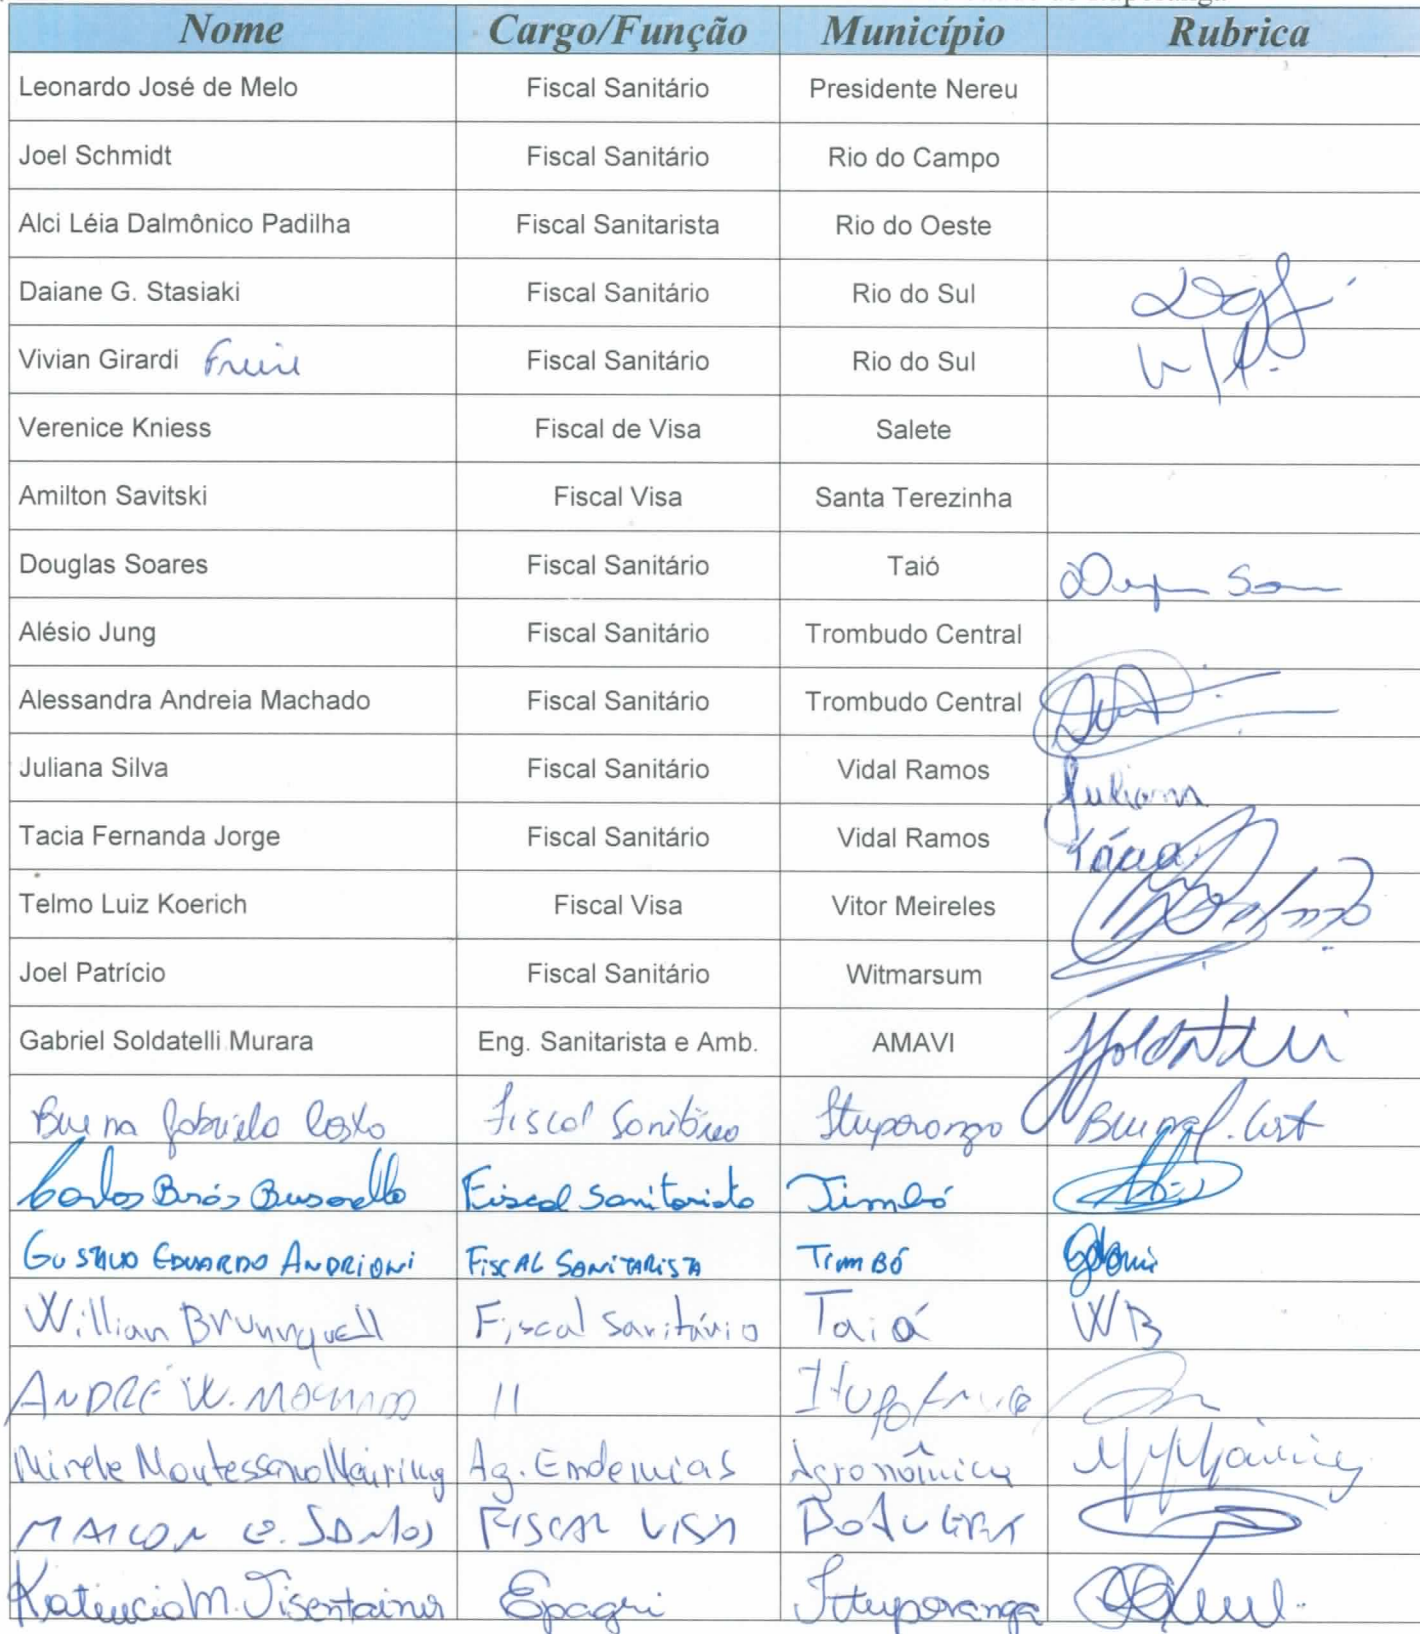 Nome Cargo/Função Município Rubrica
Leonardo José de Melo Fiscal Sanitário Presidente Nereu
Joel Schmidt Fiscal Sanitário Rio do Campo
Alci Léia Dalmônico Padilha Fiscal Sanitarista Rio do Oeste
Daiane G. Stasiaki Fiscal Sanitário Rio do Sul
Vivian Girardi Freire Fiscal Sanitário Rio do Sul
Verenice Kniess Fiscal de Visa Salete
Amilton Savitski Fiscal Visa Santa Terezinha
Douglas Soares Fiscal Sanitário Taió
Alésio Jung Fiscal Sanitário Trombudo Central
Alessandra Andreia Machado Fiscal Sanitário Trombudo Central
Juliana Silva Fiscal Sanitário Vidal Ramos Juliana
Tacia Fernanda Jorge Fiscal Sanitário Vidal Ramos Tácia
Telmo Luiz Koerich Fiscal Visa Vitor Meireles
Joel Patrício Fiscal Sanitário Witmarsum
Gabriel Soldatelli Murara Eng. Sanitarista e Amb. AMAVI Soldatelli
Bruna Gabriela Costa Fiscal Sanitário Ituporanga
Carlos Busarello Fiscal Sanitarista Timbó
GUSTAVO EDUARDO ANDRIONI FISCAL SANITARISTA TIMBÓ
Willian Brunnquell Fiscal Sanitário Taió WB
ANDRÉ W. MACHADO 11 Ituporanga
Mirele Montessano Ag. Endemias Agronômica
MAICON SANTOS FISCAL VISA
M. Tisentainer Epagri Ituporanga